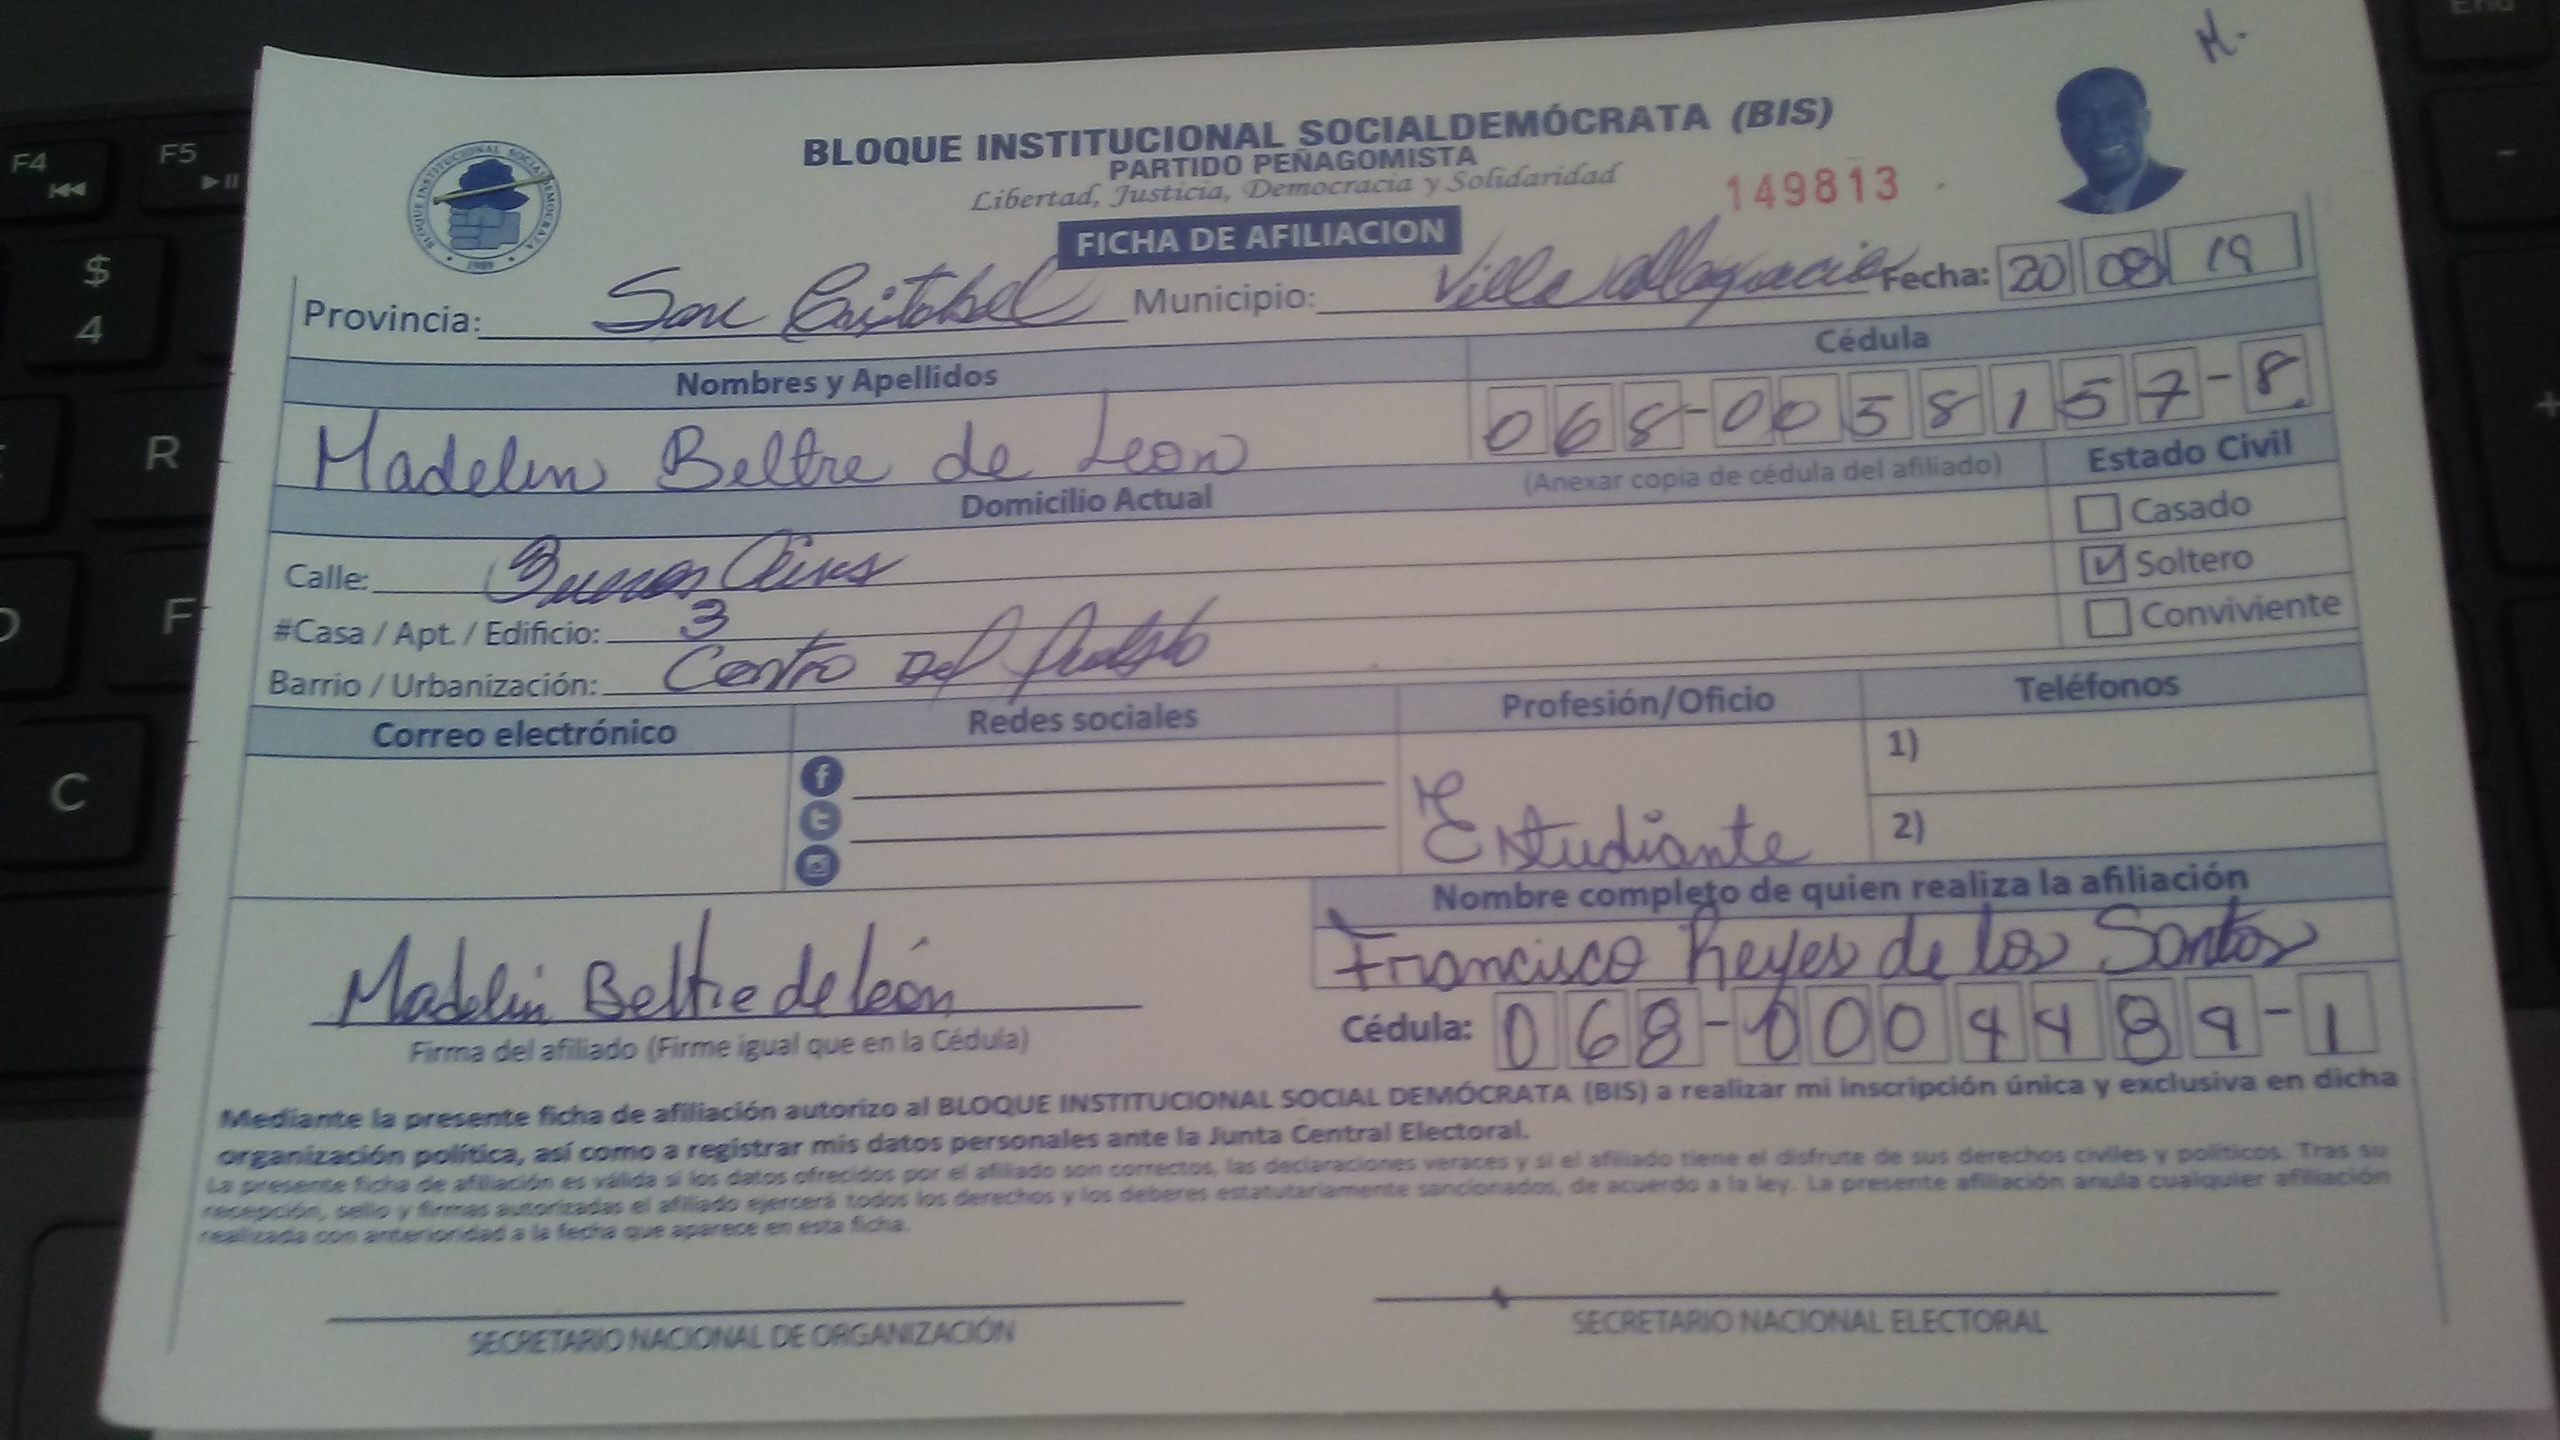 M.
BLOQUE INSTITUCIONAL SOCIALDEMÓCRATA (BIS)
PARTIDO PEÑAGOMISTA
Libertad, Justicia, Democracia y Solidaridad
149813
FICHA DE AFILIACION
BLOQUE INSTITUCIONAL SOCIALDEMOCRATA
1989
Provincia: San Cristobal Municipio: Villa Altagracia Fecha: 20 08 19
Nombres y Apellidos Cédula
Madelin Beltre de Leon 068-0058157-8
(Anexar copia de cédula del afiliado)
Domicilio Actual Estado Civil
Casado
Calle: Buenos Aires
Soltero
#Casa / Apt. / Edificio: 3
Conviviente
Barrio / Urbanización: Centro Del Pueblo
Correo electrónico Redes sociales Profesión/Oficio Teléfonos
1)
Estudiante
2)
Nombre completo de quien realiza la afiliación
Francisco Reyes de los Santos
Madelin Beltre de león
Cédula: 068-0004489-1
Firma del afiliado (Firme igual que en la Cédula)
Mediante la presente ficha de afiliación autorizo al BLOQUE INSTITUCIONAL SOCIAL DEMÓCRATA (BIS) a realizar mi inscripción única y exclusiva en dicha
organización política, así como a registrar mis datos personales ante la Junta Central Electoral.
La presente ficha de afiliación es válida si los datos ofrecidos por el afiliado son correctos, las declaraciones veraces y si el afiliado tiene el disfrute de sus derechos civiles y políticos. Tras su
recepción, sello y firmas autorizadas el afiliado ejercerá todos los derechos y los deberes estatutariamente sancionados, de acuerdo a la ley. La presente afiliación anula cualquier afiliación
realizada con anterioridad a la fecha que aparece en esta ficha.
SECRETARIO NACIONAL DE ORGANIZACIÓN SECRETARIO NACIONAL ELECTORAL
F4
F5
$
4
R
F
C
End
-
+